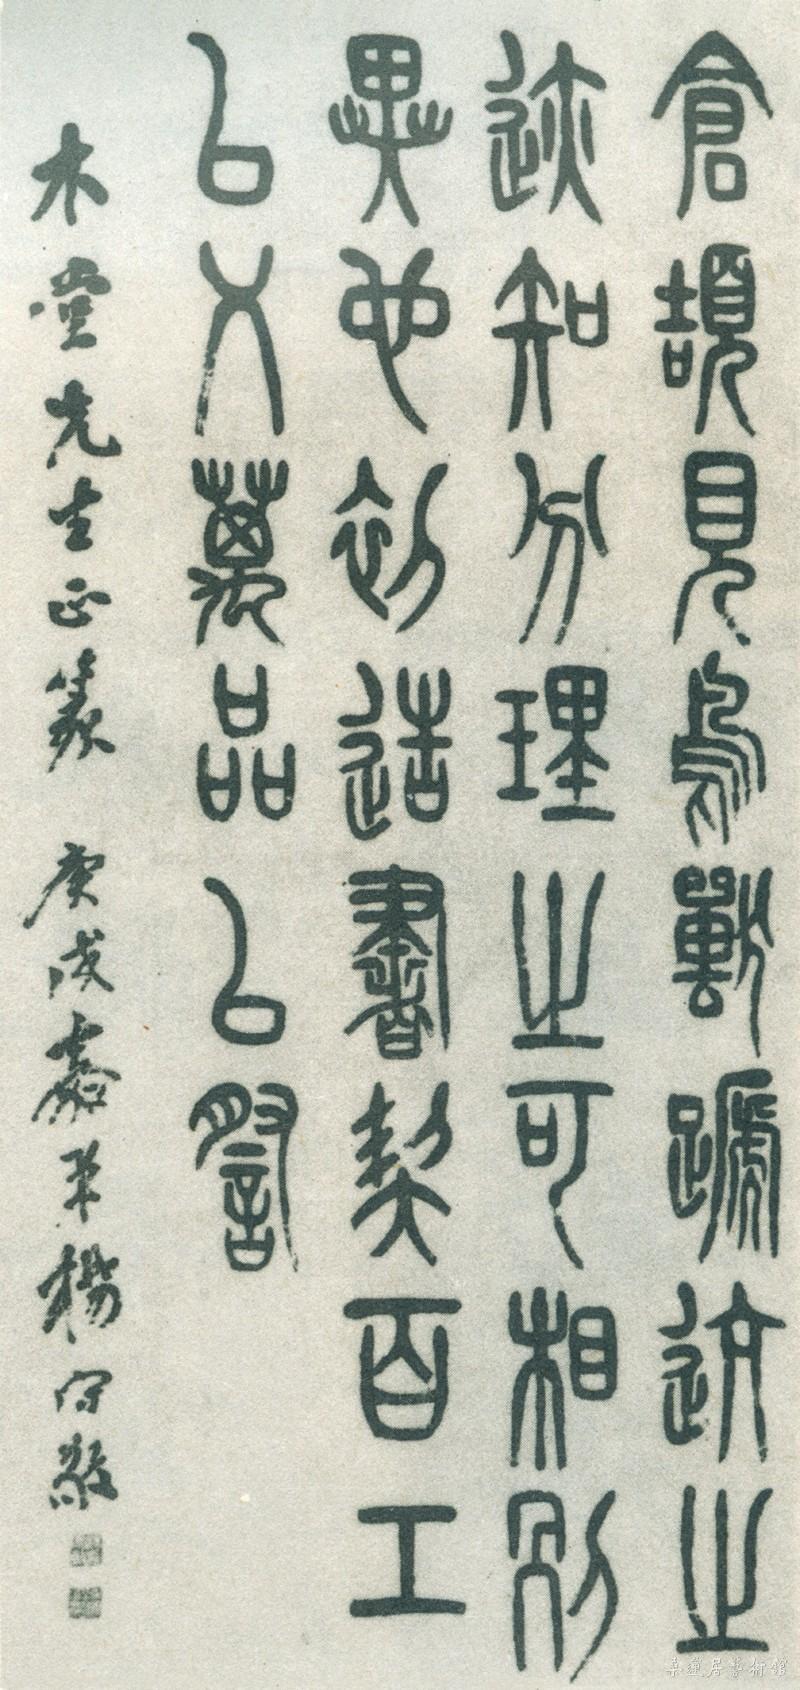 倉頡見鳥獸蹏迒之
迹知分理之可相別
異也初造書契百工
以乂萬品以詧
木堂先生正篆 庚戌嘉平楊守敬
桑蓮居藝術館